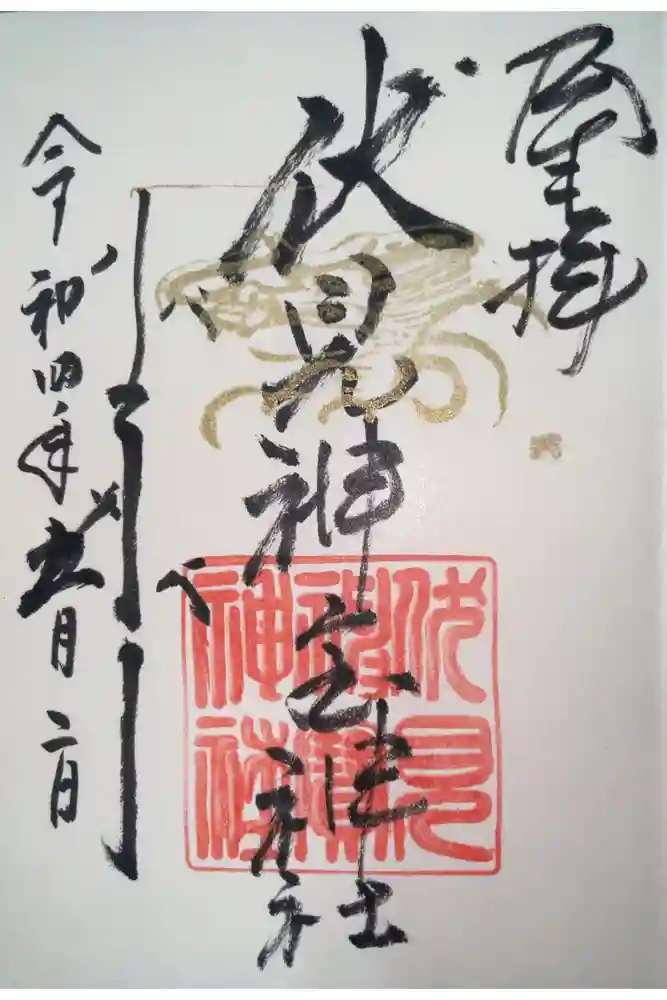 拝
伏見神宝神社
伏見
神寶
神社
令和四年五月二日